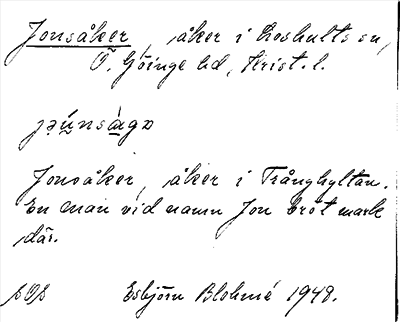 Jonsåker, åker i Loshults sn,
Ö. Göinge hd, Krist. l.
Jonsåker, åker i Trånghyltan.
En man vid namn Jon bröt mark
där.
Esbjörn Blohmé 1948.